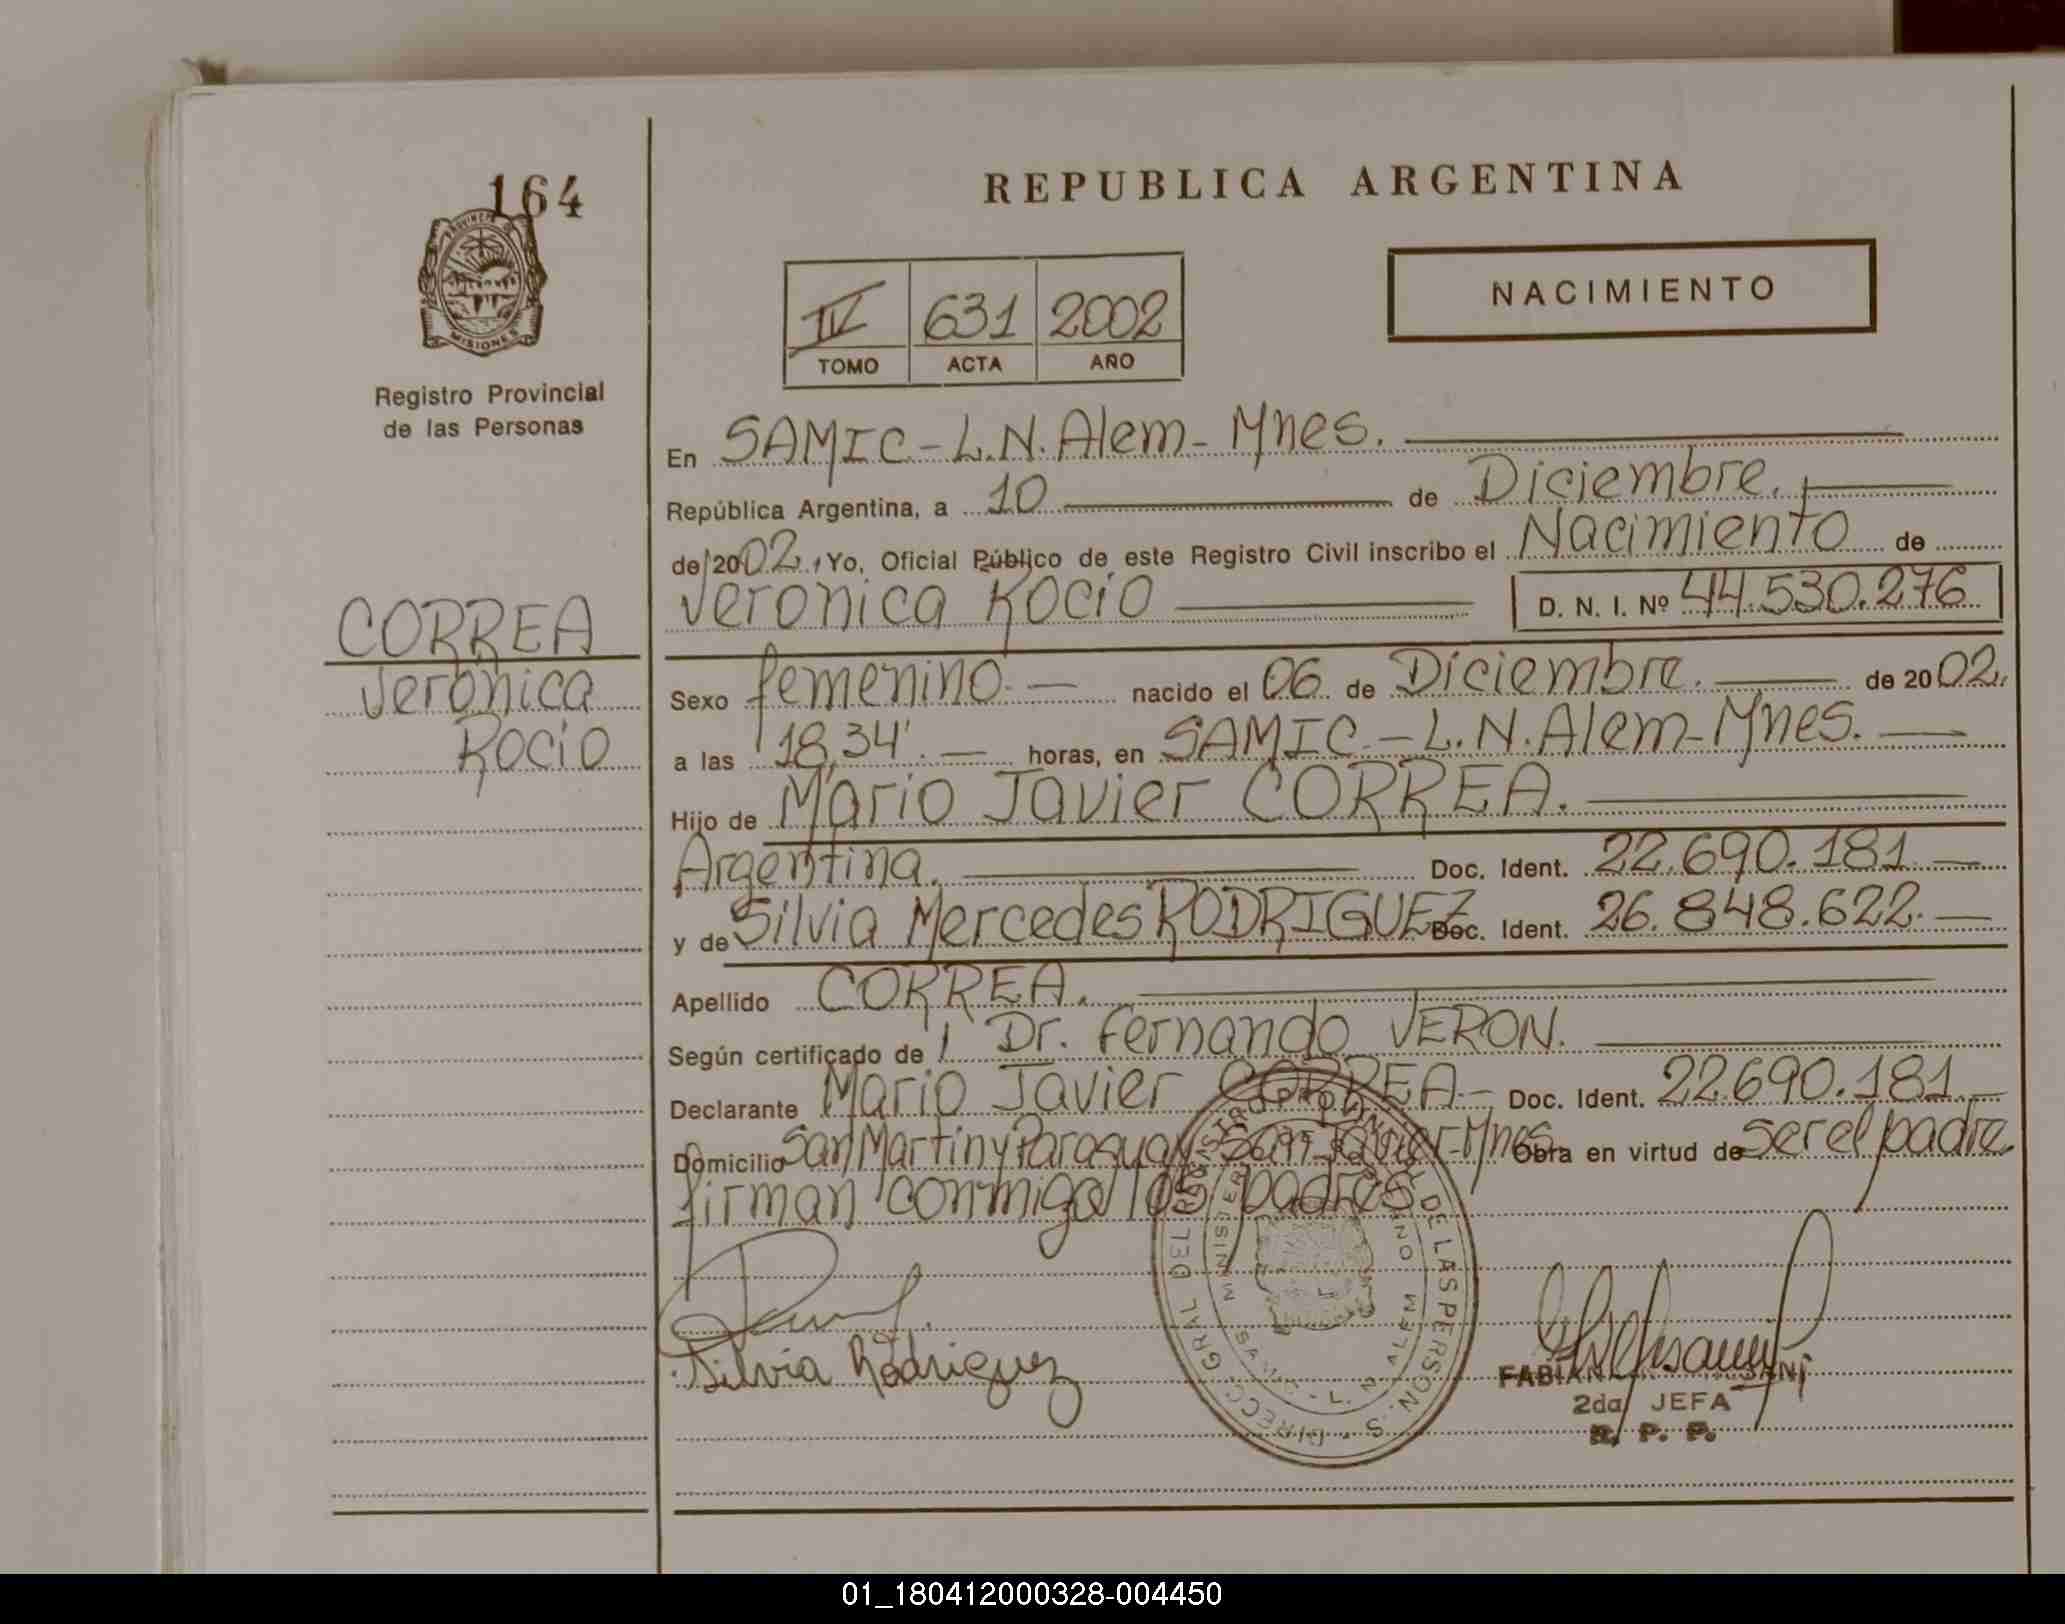 164
PROVINCIA
MISIONES
Registro Provincial
de las Personas
CORREA
Veronica
Rocio
REPUBLICA ARGENTINA
NACIMIENTO
IV 631 2002
TOMO ACTA AÑO
En SAMIC - L.N. Alem - Mnes.
República Argentina, a 10 de Diciembre.
de 2002, Yo, Oficial Público de este Registro Civil inscribo el Nacimiento de
Veronica Rocio D. N. I. Nº 44.530.276
Sexo femenino. nacido el 06 de Diciembre. de 2002.
a las 18,34'. horas, en SAMIC. - L. N. Alem - Mnes.
Hijo de Mario Javier CORREA.
Argentina. Doc. Ident. 22.690.181
y de Silvia Mercedes RODRIGUEZ Doc. Ident. 26.848.622.
Apellido CORREA.
Según certificado de Dr. Fernando VERON.
Declarante Mario Javier CORREA - Doc. Ident. 22690.181
Domicilio San Martin y Paraguay San Javier - Mnes Obra en virtud de ser el padre.
firman conmigo los padres
DIRECC. GRAL. DEL REGISTRO PROVINCIAL DE LAS PERSONAS
L. N. ALEM
Silvia Rodriguez
2da JEFA
R. P. P.
01_180412000328-004450